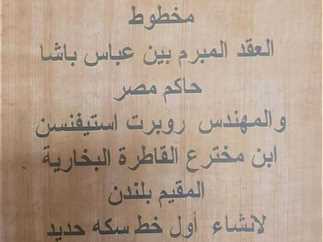 مخطوط
العقد المبرم بين عباس باشا
حاكم مصر
والمهندس روبرت استيفنسن
ابن مخترع القاطرة البخارية
المقيم بلندن
لانشاء أول خط سكه حديد